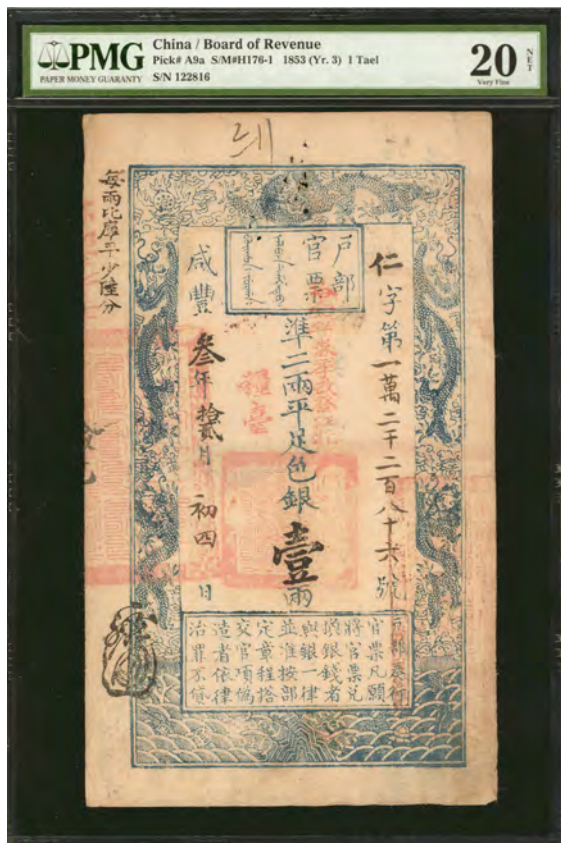 PMG
PAPER MONEY GUARANTY
China / Board of Revenue
Pick# A9a S/M#H176-1 1853 (Yr. 3) 1 Tael
S/N 122816
20
NET
Very Fine
仁字第一萬二千二百八十六號
戶部
官票
準二兩平足色銀壹兩
咸豐叁年拾貳月初四日
每兩比庫平少陸分
戶部奏行
官票凡願
將官票兌
換銀錢者
與銀一律
並准按部
定章程搭
交官項偽
造者依律
治罪不貸